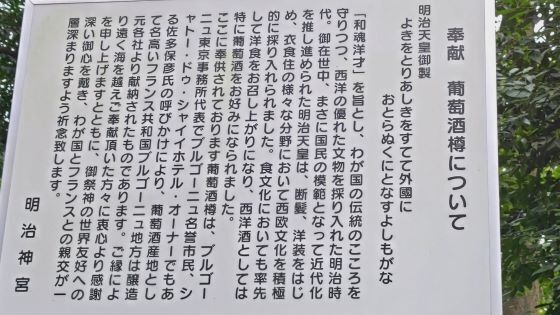 奉献　葡萄酒樽について
明治天皇御製
よきをとりあしきをすてて外國に
おとらぬくにとなすよしもがな
「和魂洋才」を旨とし、わが国の伝統のこころを
守りつつ、西洋の優れた文物を採り入れた明治時
代。御在世中、まさに国民の模範となって近代化
を推し進められた明治天皇は、断髪、洋装をはじ
め、衣食住の様々な分野において西欧文化を積極
的に採り入れられました。食文化においても率先
して洋食をお召し上がりになり、西洋酒としては
特に葡萄酒をお好みになられました。
ここに奉供されております葡萄酒樽は、ブルゴー
ニュ東京事務所代表でブルゴーニュ名誉市民、シ
ャトー・ドゥ・シャイイホテル・オーナーでもあ
る佐多保彦氏の呼びかけにより、葡萄酒産地とし
て名高いフランス共和国ブルゴーニュ地方は醸造
元各社より献納されたものであります。ご縁によ
り遠く海を越えご奉献頂いた方々に衷心より感謝
を申し上げますとともに、御祭神の世界友好への
深い御心を戴き、わが国とフランスとの親交が一
層深まりますよう祈念致します。
明治神宮